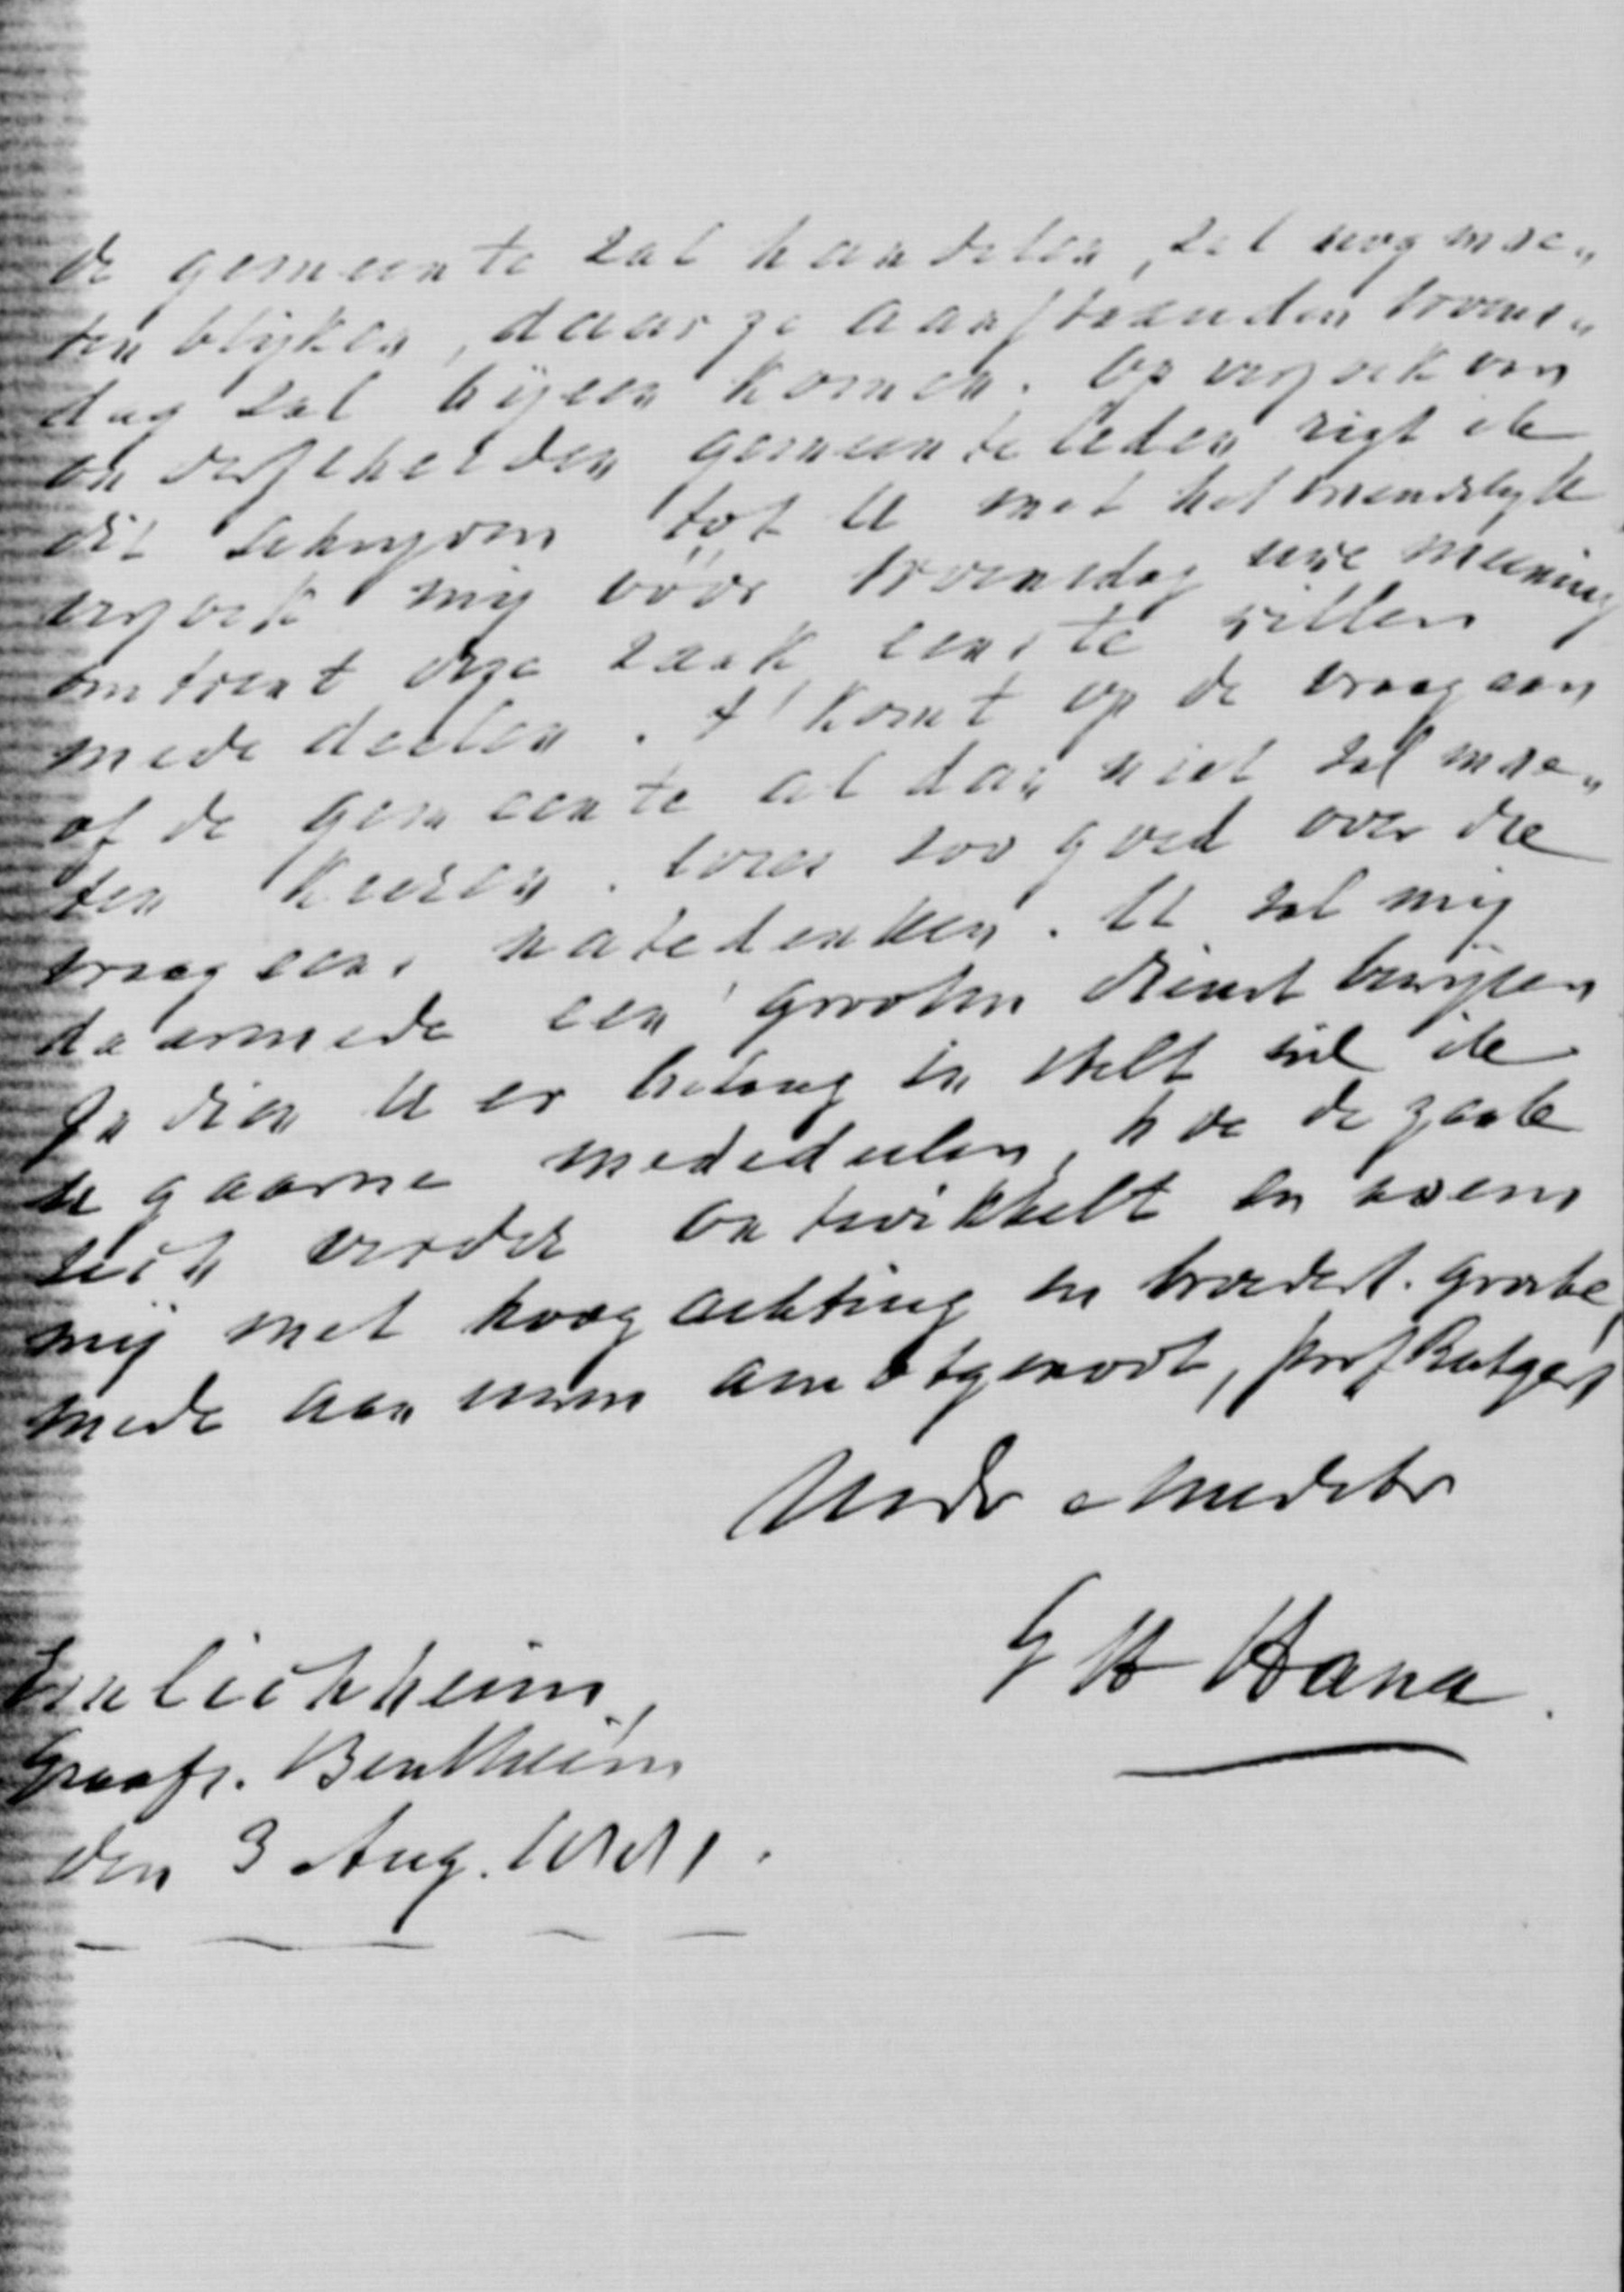 de gemeente zal handelen, zal nog moe„
ten blijken, daar ze aanstaanden woens„
dag zal bijeen komen. Op verzoek van
onderscheiden gemeenteleden rigt ik
dit schrijven tot U met het vriendelijk
verzoek mij vóór woensdag uwe meening
omtrent deze zaak eens te willen
mede deelen. 't komt op de vraag aan
of de gemeente al dan niet zal moe„
ten kiezen. Wees zoo goed over die
vraag eens natedenken. U zal mij
daarmede een grooten dienst bewijzen
Indien U er belang in stelt zal ik
U gaarne mededeelen, hoe de zaak
zich verder ontwikkelt en noem
mij met hoogachting en broederl. groete,
mede aan uwen ambtgenoot, prof Rutgers
Uwdr e mededr
G H Hana.
Emlichheim,
Graafs. Bentheim
den 3 Aug. 1881.